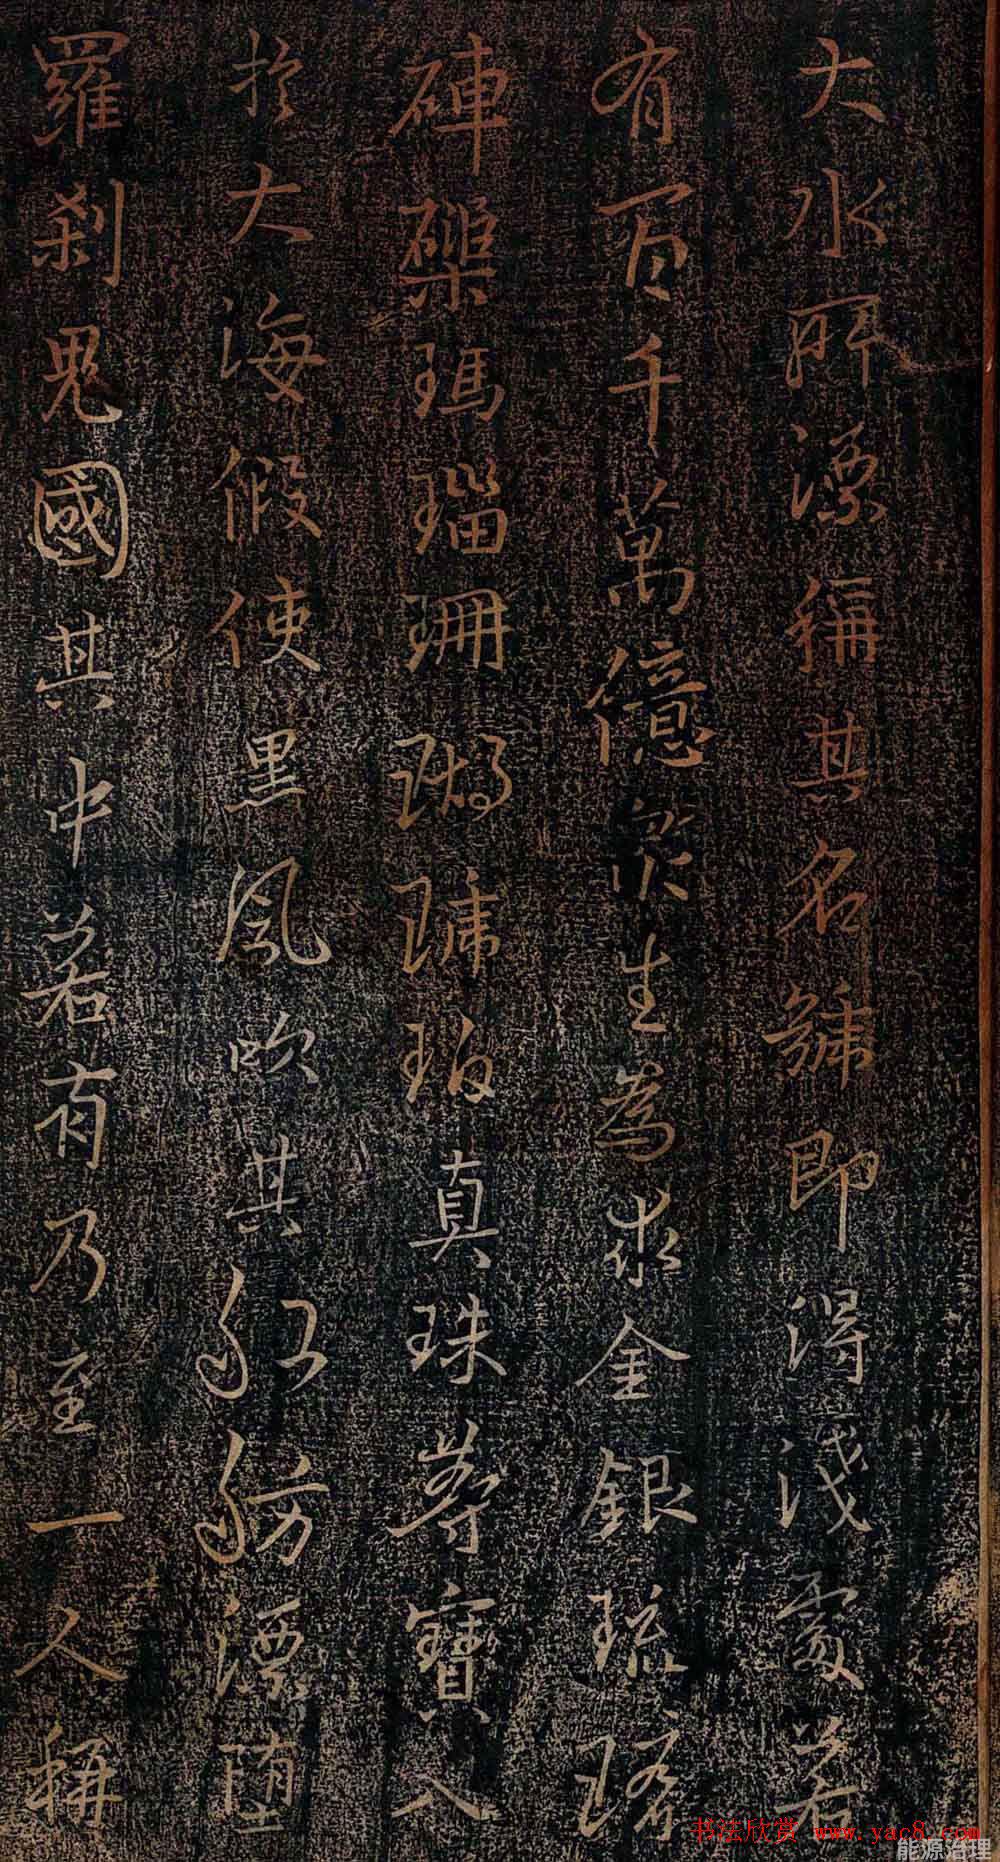 大水所漂稱其名號即得淺處若
有百千萬億衆生為求金銀琉璃
硨磲瑪瑙珊瑚琥珀真珠等寶入
於大海假使黑風吹其舡舫漂堕
羅刹鬼國其中若有乃至一人稱
书法欣赏 www.yac8.com
能源治理